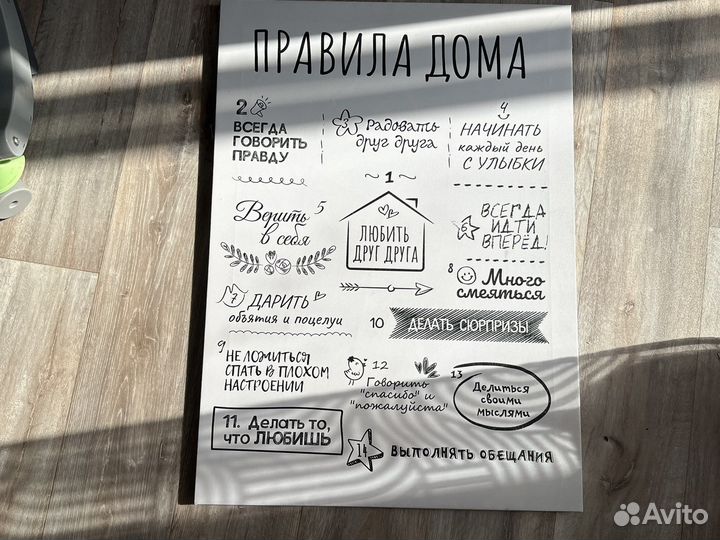 ПРАВИЛА ДОМА
2
ВСЕГДА
ГОВОРИТЬ
ПРАВДУ
3
Радовать
друг друга
4
НАЧИНАТЬ
каждый день
С УЛЫБКИ
~ 1 ~
ЛЮБИТЬ
ДРУГ ДРУГА
5
Верить
в себя
6
ВСЕГДА
ИДТИ
ВПЕРЁД!
7 ДАРИТЬ
объятия и поцелуи
8
Много
смеяться
10 ДЕЛАТЬ СЮРПРИЗЫ
9
НЕ ЛОЖИТЬСЯ
СПАТЬ В ПЛОХОМ
НАСТРОЕНИИ
12
Говорить
"спасибо" и
"пожалуйста"
13
Делиться
своими
мыслями
11. Делать то,
что ЛЮБИШЬ
14 ВЫПОЛНЯТЬ ОБЕЩАНИЯ
Avito